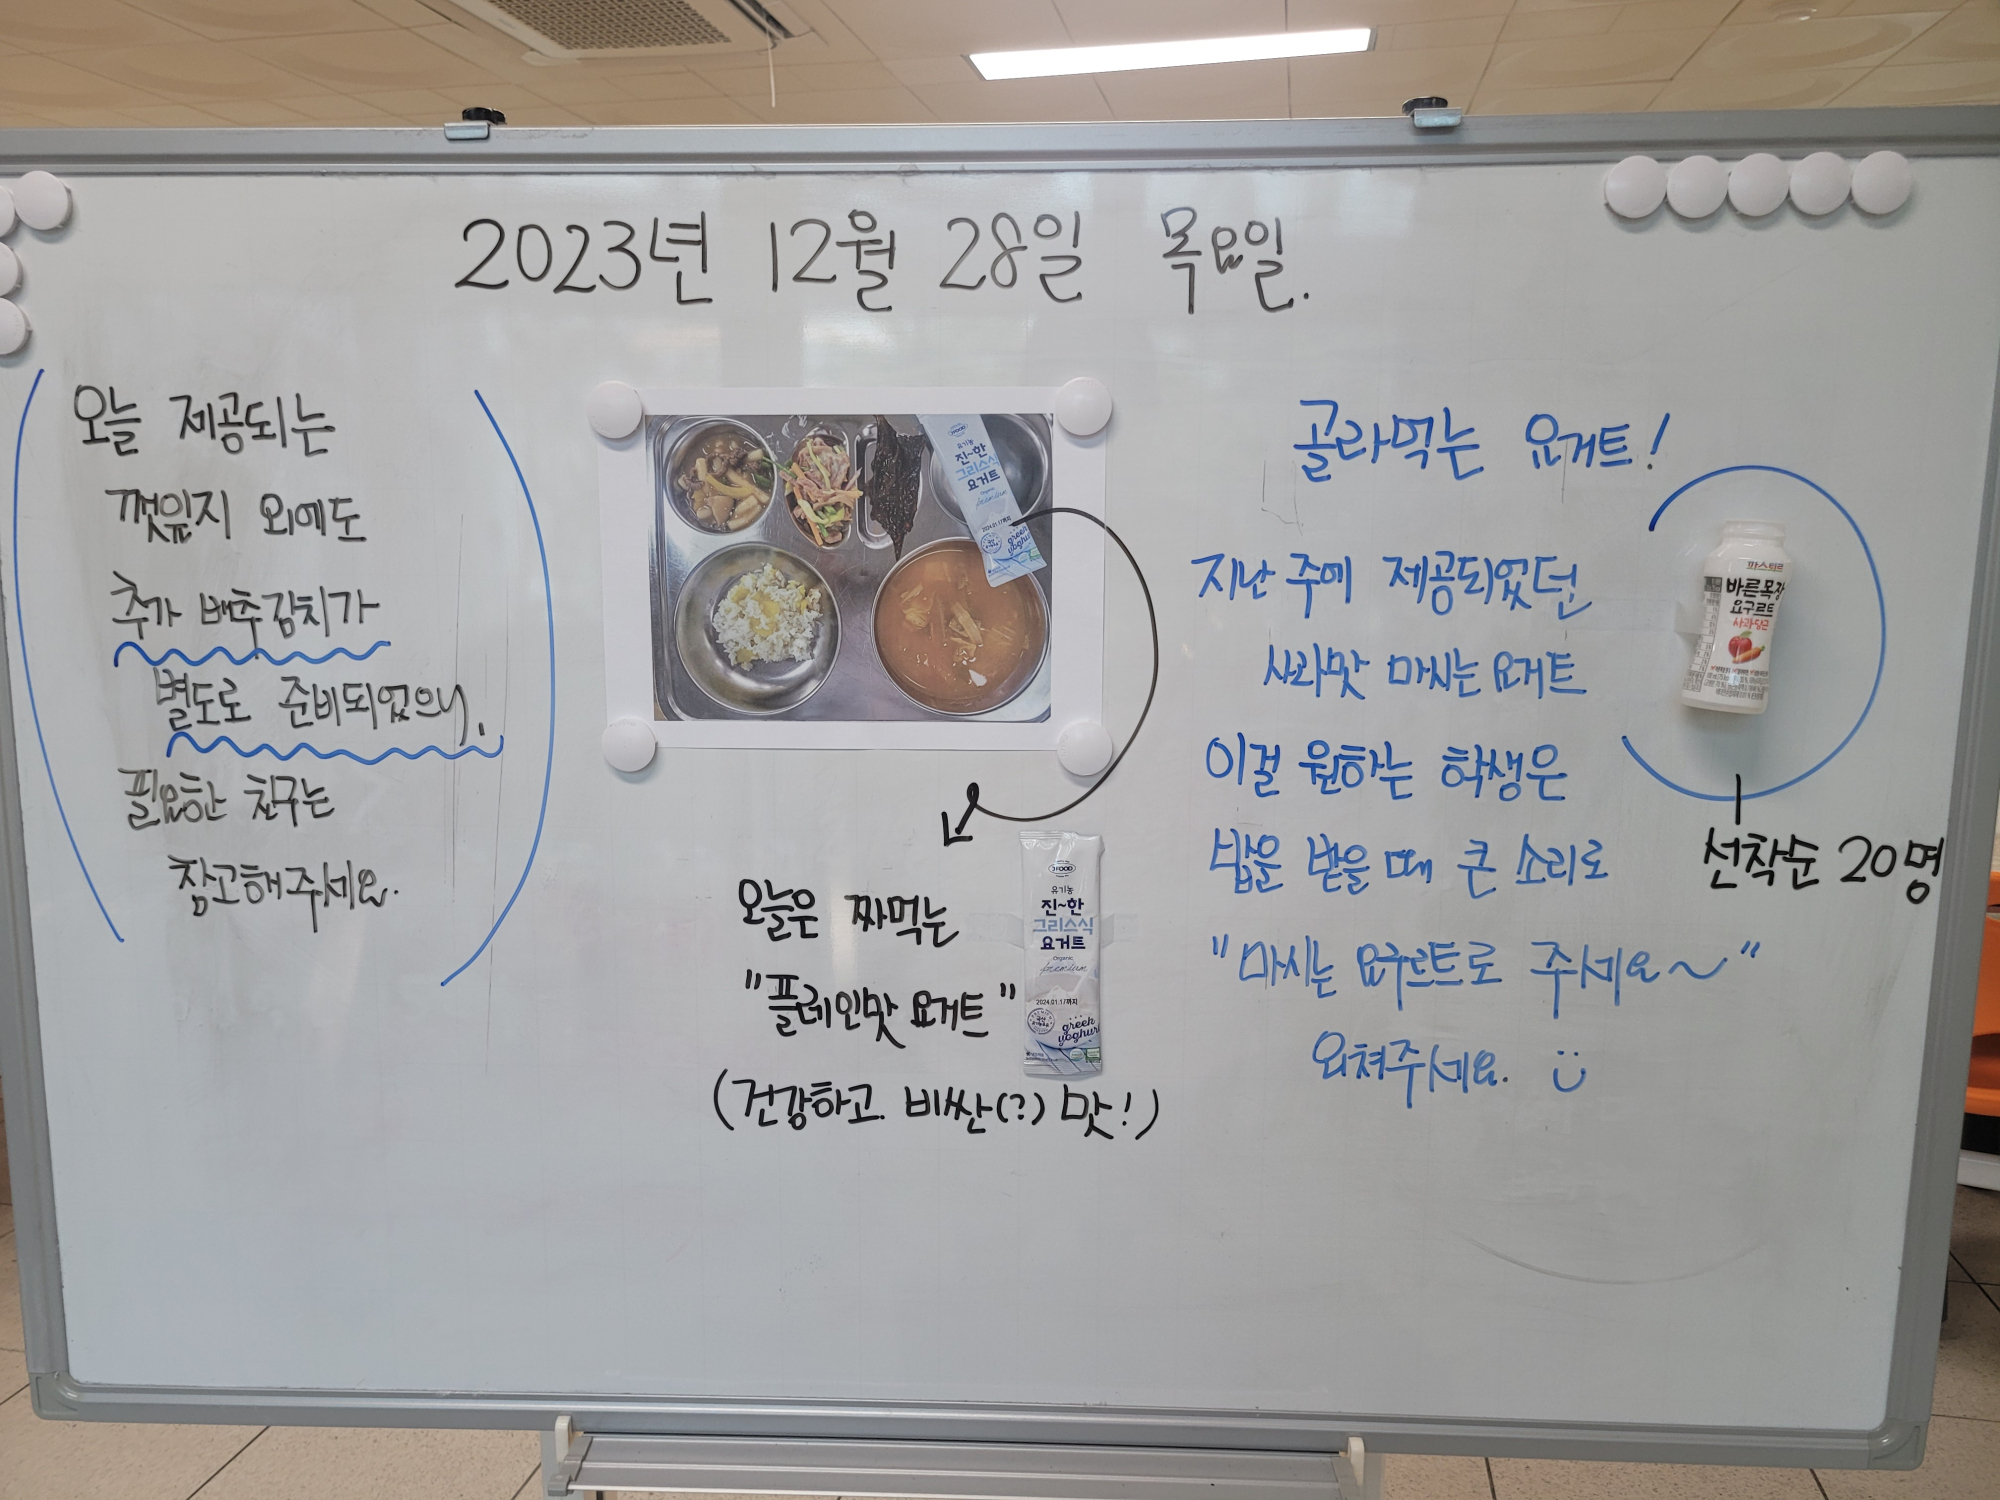 2023년 12월 28일 목요일.
오늘 제공되는
깻잎지 외에도
추가 배추김치가
별도로 준비되었으니,
필요한 친구는
참고해주세요.
유기농
진~한
그리스식
요거트
Organic
premium
2024.01.17까지
greek
yoghurt
오늘은 짜먹는
"플레인맛 요거트"
(건강하고 비싼(?) 맛!)
JFOOD
유기농
진~한
그리스식
요거트
Organic
premium
2024.01.17까지
greek
yoghurt
골라먹는 요거트!
지난 주에 제공되었던
사과맛 마시는 요거트
이걸 원하는 학생은
밥을 받을 때 큰 소리로
"마시는 요구르트로 주세요~"
외쳐주세요.
파스퇴르
바른목장
요구르트
사과당근
선착순 20명